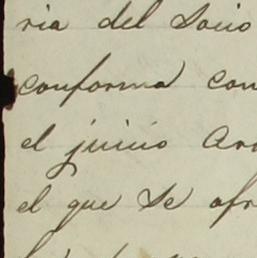 ria del Socio
conforma con
el juicio Ar
el que se afr